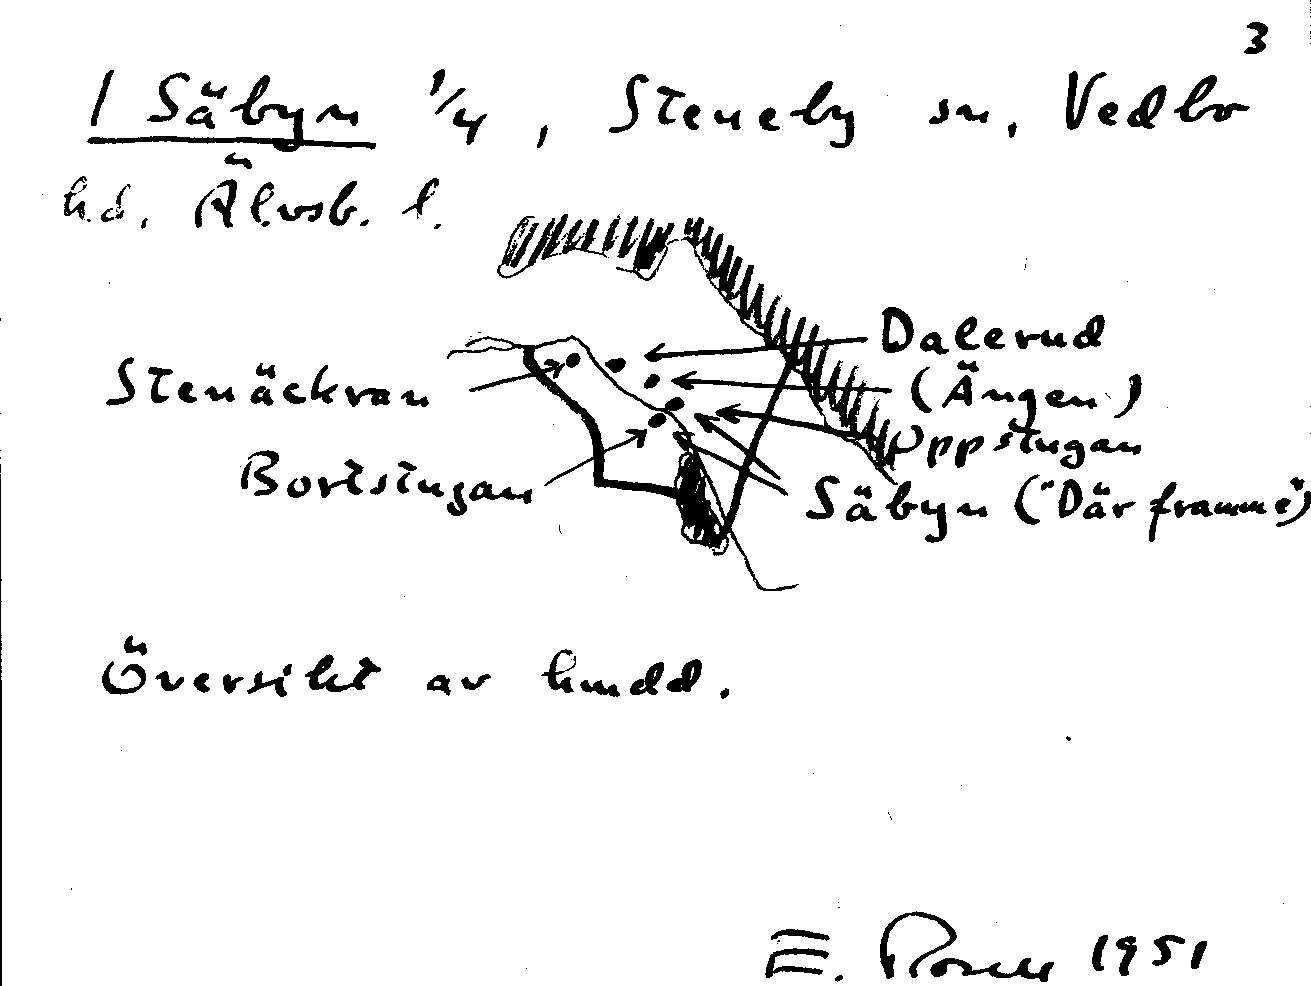 3
/ Säbyn 1/4, Steneby sn, Vedbo
hd. Älvsb. l.
Dalerud
Stenäckran
(Ängen)
Uppstugan
Bortstugan
Säbyn ("Där framme")
Översikt av hmdd.
E. Rosell 1951